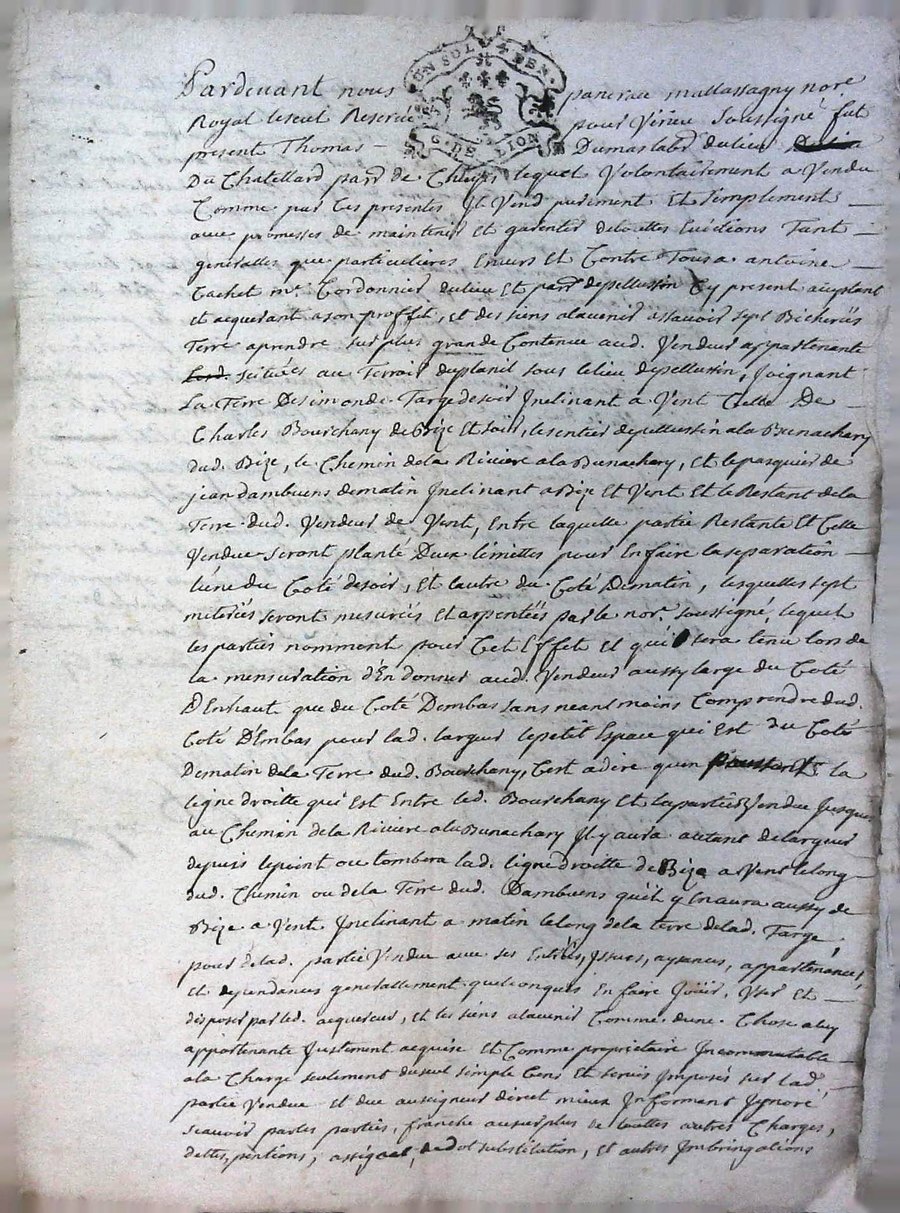 UN SOL 4 DEN.
G. DE LION
Pardevant nous pancrace mallassagny nore.
Royal leseul Reservé pour Virieu Soussigné fut
present Thomas Dumas labr. dulieu
Du Chatellard parr. de lequel Volontairement a Vendu
Comme par Ces presentes Il Vend purement Et Simplement
avec promesses de maintenir Et garentir detouttes Evictions Tant
generalles que particulieres Envers Et Contre Tous a antoine
Cachet me. Cordonnier dulieu Et parr. depellussin Cy present aceptant
Et aquerant a son proffit, et des siens alavenir assavoir sept Bicherées
Terre aprendre sur plus grande Contenue aud. Vendeur appartenante
scituées au Terroir deplanil sous lelieu depellussin, Joignant
La Terre Desimonde Targe desoir Inclinant a Vent Celle De
Charles Bourchany de Bize Et soir, lesentier depellussin ala Bunachary
dud. Bize, le Chemin dela Riviere ala Bunachary, Et lepasquier de
jean dambuens dematin Inclinant a Bize Et Vent Et le Restant dela
Terre dud. Vendeur de Vent, Entre laquelle partie Restante Et Celle
Vendue seront planté Deux limittes pour En faire la separation
lune du Coté desoir, Et lautre du Coté Dematin, lesquelles sept
meterées seront mesurées Et arpentées par le nore. soussigné, lequel
les parties nomment pour Cet Effet Et qui sera tenu lors de
la mensuration d'En donner aud. Vendeur aussy large du Coté
D'Enhaut que du Coté Dembas sans neantmoins Comprendre dud.
Coté D'Embas pour lad. largeur lepetit Espace qui Est du Coté
Dematin dela Terre dud. Bourchany, C'est adire qu'en la
ligne droitte qui Est Entre led. Bourchany Et la partie Vendue Jusques
au Chemin dela Riviere ala Bunachary Il y aura autant delargeur
depuis lepoint ou tombera lad. ligne droitte de Bize a Vent lelong
dud. Chemin ou dela Terre dud. Dambuens qu'il y En aura aussy de
Bize a Vent Inclinant a matin lelong dela terre delad. Targe,
pour delad. partie Vendue avec ses Entrées, Issues, aysances, appartenances
Et dependances generallement quelconques En faire Jouir, User Et
disposer par led. aquereur, Et les siens alavenir Comme dune Chose aluy
appartenante Justement aquise Et Comme propriétaire Incommutable
ala Charge seulement duseul simple Cens Et servis Imposés sur lad.
partie Vendue Et due auseigneur direct mieux Informant Ignoré
scavoir par les parties, franche ausurplus de touttes autres Charges,
dettes, pentions, substitution, Et autres Imbringations